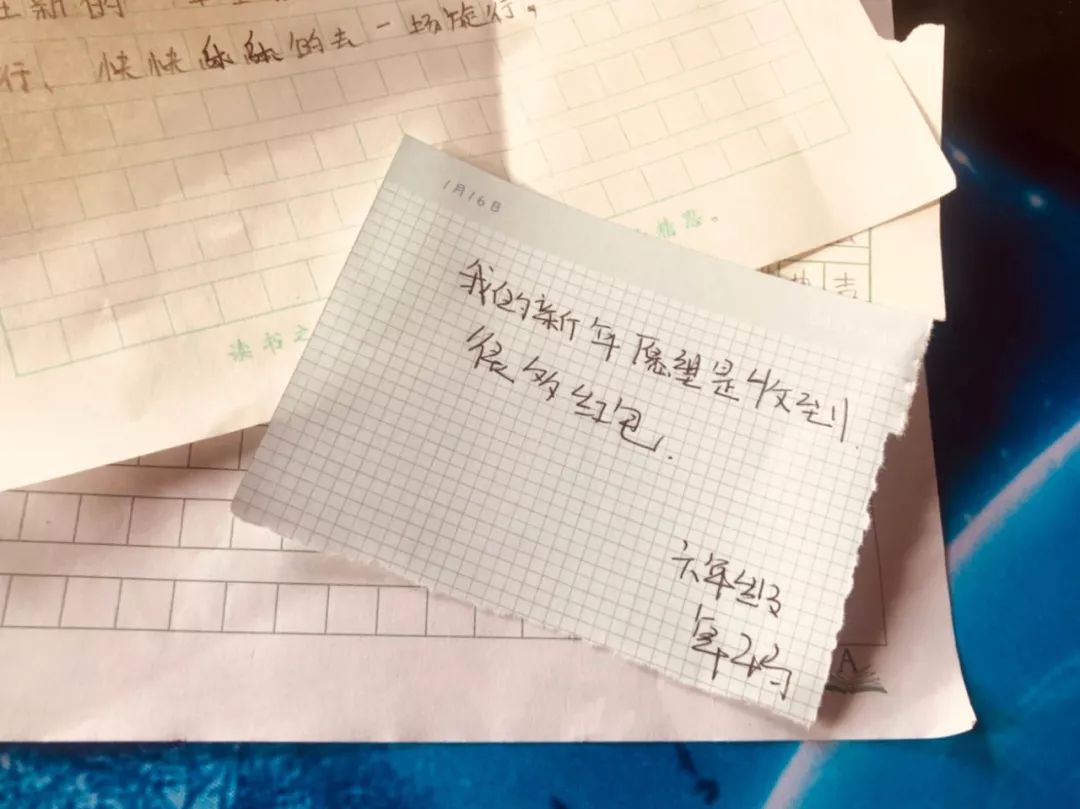 行、快快乐乐的去一场旅行。
1月16日
我的新年愿望是收到
很多红包.
六年级
读书之
A